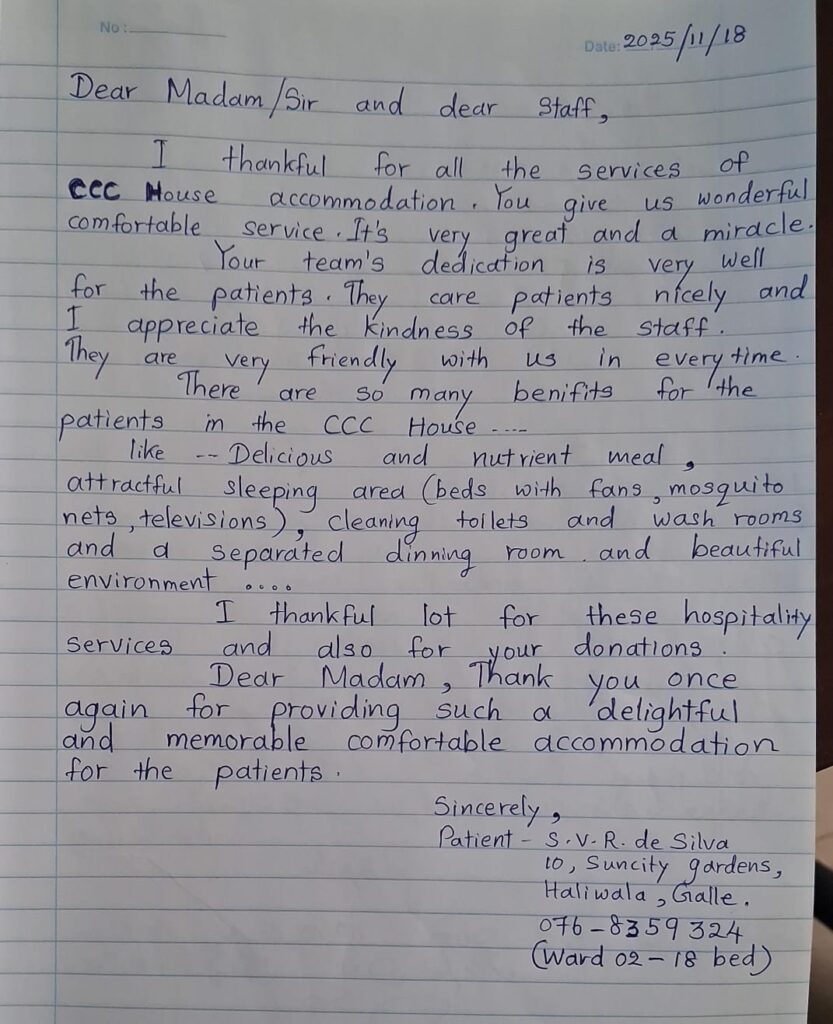 No:
Date: 2025/11/18
Dear Madam/Sir and dear Staff,
I thankful for all the services of
CCC House accommodation. You give us wonderful
comfortable service. It's very great and a miracle.
Your team's dedication is very well
for the patients. They care patients nicely and
I appreciate the kindness of the staff.
They are very friendly with us in every time.
There are so many benifits for the
patients in the CCC House ----
like -- Delicious and nutrient meal,
attractful sleeping area (beds with fans, mosquito
nets, televisions), cleaning toilets and wash rooms
and a separated dinning room and beautiful
environment ....
I thankful lot for these hospitality
services and also for your donations.
Dear Madam, Thank you once
again for providing such a delightful
and memorable comfortable accommodation
for the patients.
Sincerely,
Patient - S.V.R. de Silva
10, Suncity gardens,
Haliwala, Galle.
076-8359324
(Ward 02-18 bed)